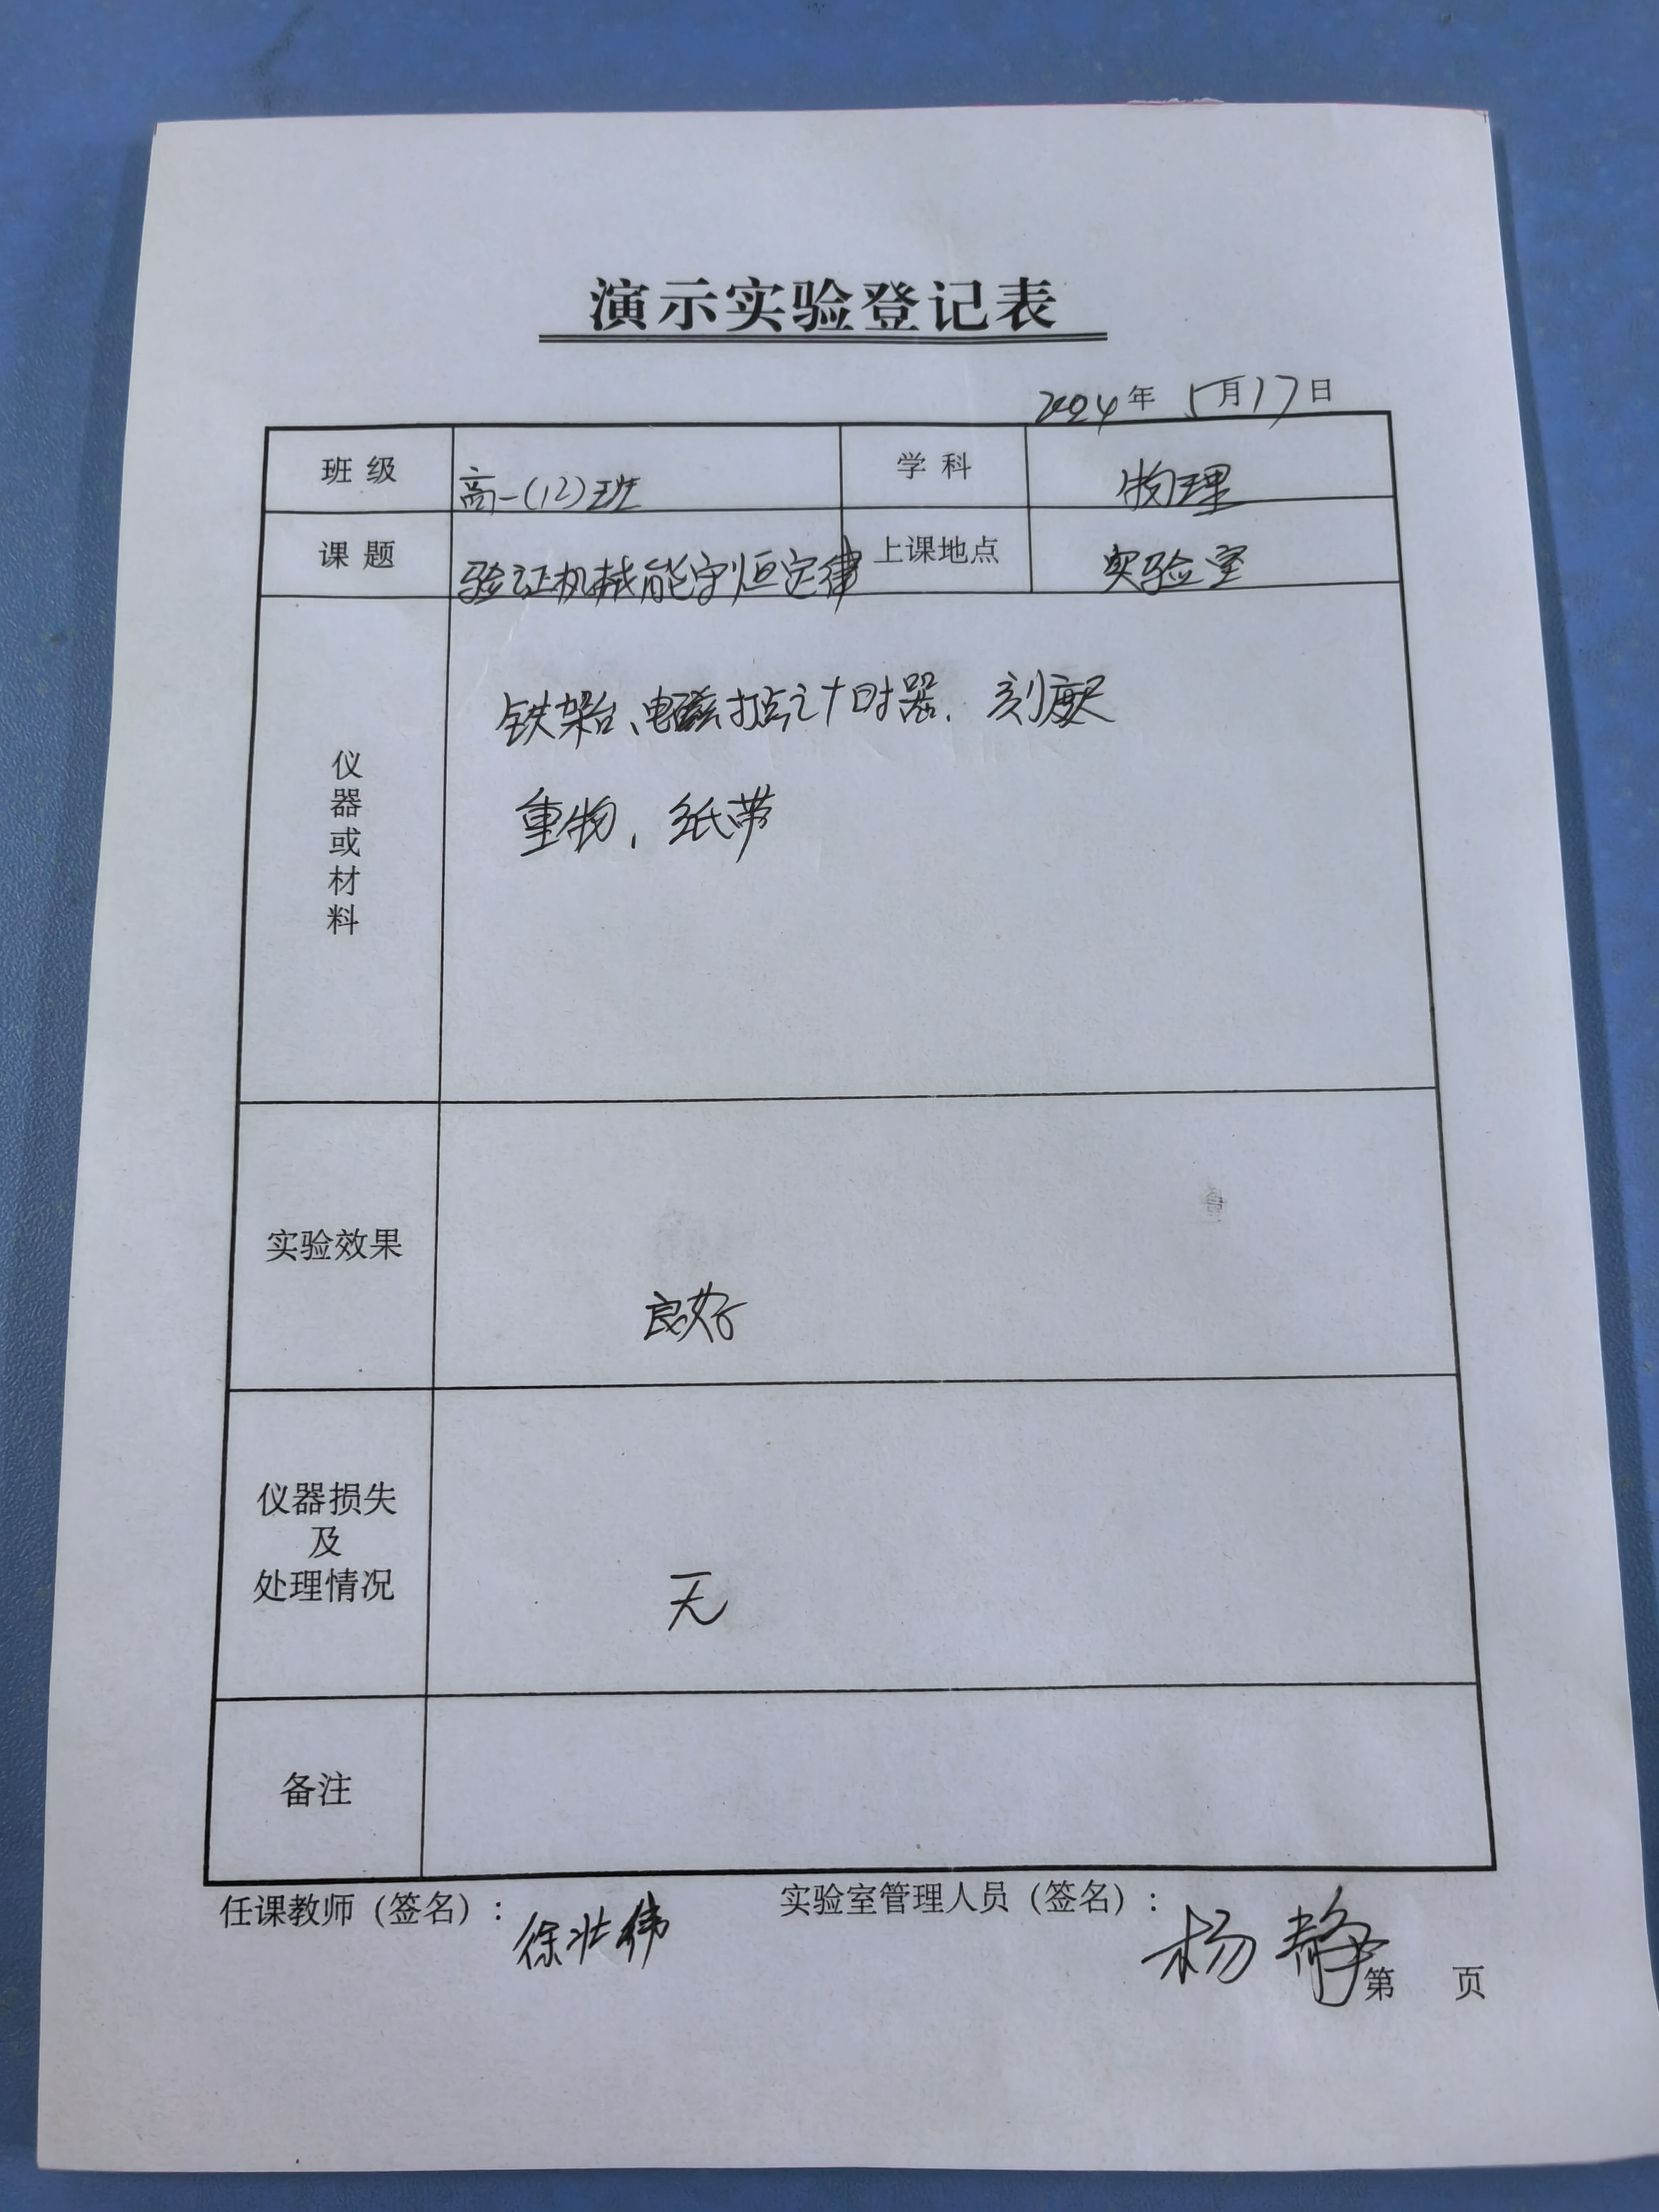 演示实验登记表
2024年 5月17日
班级 高一(12)班 学科 物理
课题 验证机械能守恒定律 上课地点 实验室
仪器或材料
铁架台、电磁打点计时器、刻度尺
重物、纸带
实验效果
良好
仪器损失
及
处理情况
无
备注
任课教师（签名）: 徐壮伟 实验室管理人员（签名）: 杨静
第 页